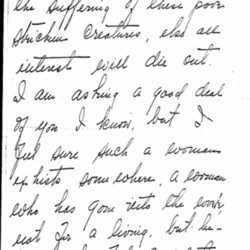 the suffering of these poor
stricken creatures, else all
interest will die out.
I am asking a good deal
of you I know, but I
feel sure such a woman
exhists somewhere, a woman
who has gone into the work
not for a living, but be-